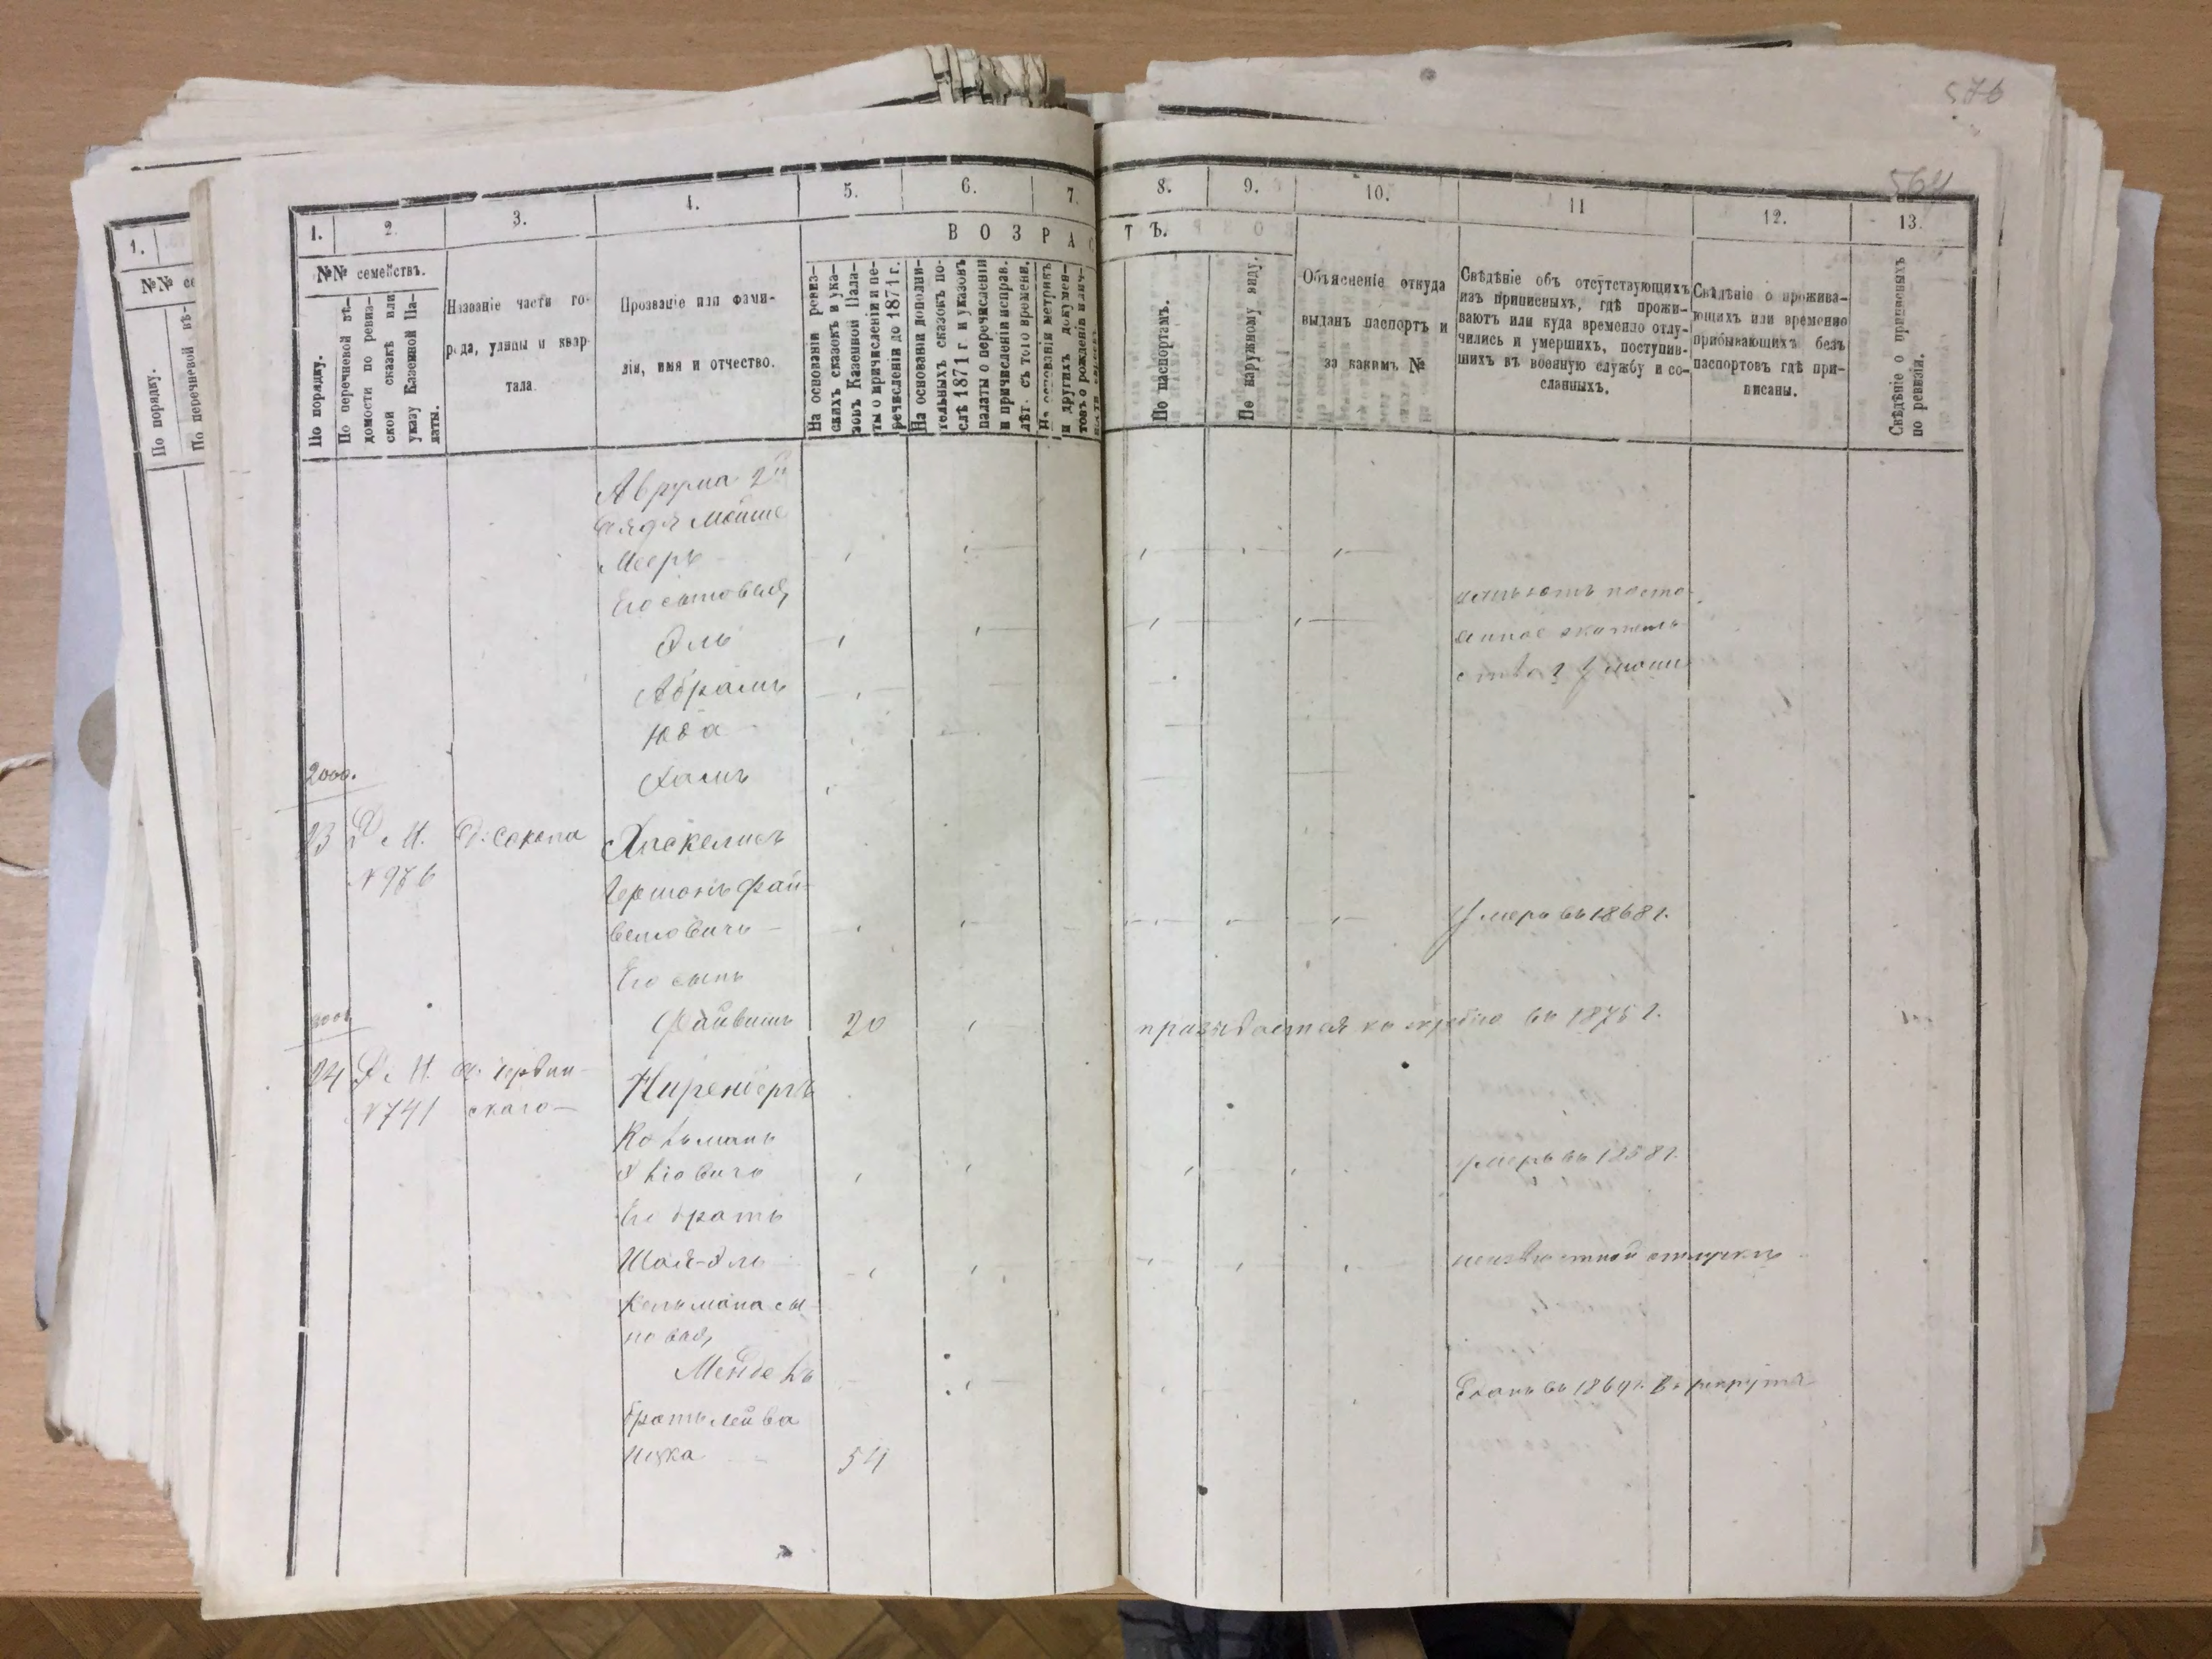 576
564
1.
№№ се
По порядку.
По перечневой вѣ-
1.
2.
3.
4.
5.
6.
7.
8.
9.
10.
11
12.
13.
№№ семействъ.
По порядку.
По перечневой вѣ-
домости по ревиз-
ской сказкѣ или
указу Казенной Па-
латы.
Названіе части го-
рода, улицы и квар
тала.
Прозваніе или фами-
лія, имя и отчество.
ВОЗРАС
ТЪ.
На основаніи ревиз-
скихъ сказокъ и ука-
зовъ Казенной Пала-
ты о причисленіи и пе-
речисленіи до 1871 г.
На основаніи дополни-
тельныхъ сказокъ по-
слѣ 1871 г. и указовъ
палаты о перечисленіи
и причисленіи исправ.
лѣт. съ того времени.
На основаніи метрикъ
и другихъ докумен-
товъ о рожденіи и лич-
По паспортамъ.
По наружному виду.
Объясненіе откуда
выданъ паспортъ и
за какимъ №
Свѣдѣніе объ отсутствующихъ
изъ приписныхъ, гдѣ прожи-
ваютъ или куда временно отлу-
чились и умершихъ, поступив-
шихъ въ военную службу и со-
сланныхъ.
Свѣдѣніе о прожива-
ющихъ или временно
прибывающихъ безъ
паспортовъ гдѣ при-
писаны.
Свѣдѣніе о приписныхъ
по ревизіи.
Аврума 2й
дядя Мойше
Мееръ
Его сыновья,
Эль
Абрамъ
Юда
Хаимъ
имѣютъ посто-
янное жительс
2000.
23
№ 976
Хаскелисъ
Гершонъ Фай-
вешовичъ
Умеръ въ 1868 г.
Его сынъ
Файвишъ 20
призывается къ жребію въ 1875 г.
24
№ 741
скаго
Ниренбергъ
Кельманъ
Эліовичъ
умеръ въ 1858 г.
Его братъ
Шая-Эль
неизвѣстной отлучкѣ
Кельмана сы-
новья,
Мендель
Сданъ въ 1864 г. въ рекруты
братъ Лейба
Ицка 54